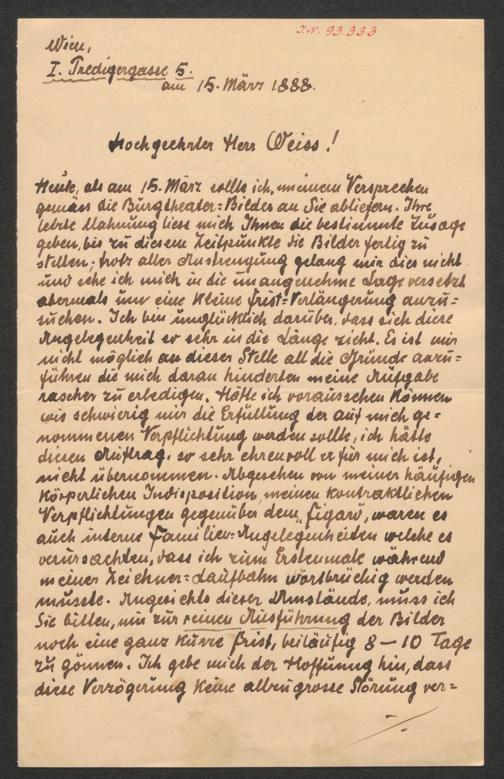 I.N. 93.333
Wien,
I. Predigergasse 5.
am 15. März 1888.
Hochgeehrter Herr Weiss!
Heute, als am 15. März sollte ich, meinem Versprechen
gemäss die Burgtheater=Bilder an Sie abliefern. Ihre
letzte Mahnung liess mich Ihnen die bestimmte Zusage
geben, bis zu diesem Zeitpunkte die Bilder fertig zu
stellen; trotz aller Anstrengung gelang mir dies nicht
und sehe ich mich in die unangenehme Lage versetzt
abermals um eine kleine Frist=Verlängerung anzu=
suchen. Ich bin unglücklich darüber, dass sich diese
Angelegenheit so sehr in die Länge zieht. Es ist mir
nicht möglich an dieser Stelle all die Gründe anzu=
führen die mich daran hinderten meine Aufgabe
rascher zu erledigen. Hätte ich voraussehen können
wie schwierig mir die Erfüllung der auf mich ge=
nommenen Verpflichtung werden sollte, ich hätte
diesen Auftrag, so sehr ehrenvoll er für mich ist,
nicht übernommen. Abgesehen von meiner häufigen
körperlichen Indisposition, meinen kontraktlichen
Verpflichtungen gegenüber dem „Figaro", waren es
auch interne Familien=Angelegenheiten welche es
verursachten, dass ich zum Erstenmale während
meiner Zeichner=Laufbahn wortbrüchig werden
musste. Angesichts dieser Umstände, muss ich
Sie bitten, mir zur reinen Ausführung der Bilder
noch eine ganz kurze Frist, beiläufig 8 – 10 Tage
zu gönnen. Ich gebe mich der Hoffnung hin, dass
diese Verzögerung keine allzugrosse Störung ver=